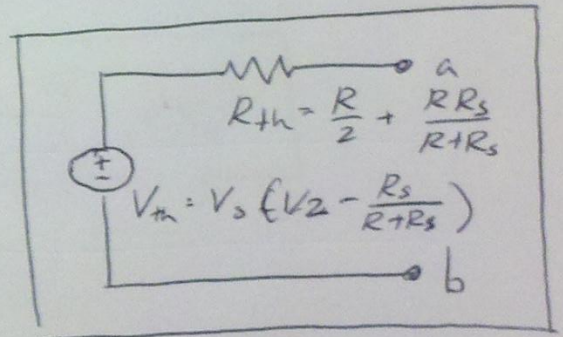 a
R_th = R/2 + R R_s/(R+R_s)
+
-
V_th = V_s (1/2 - R_s/(R+R_s))
b